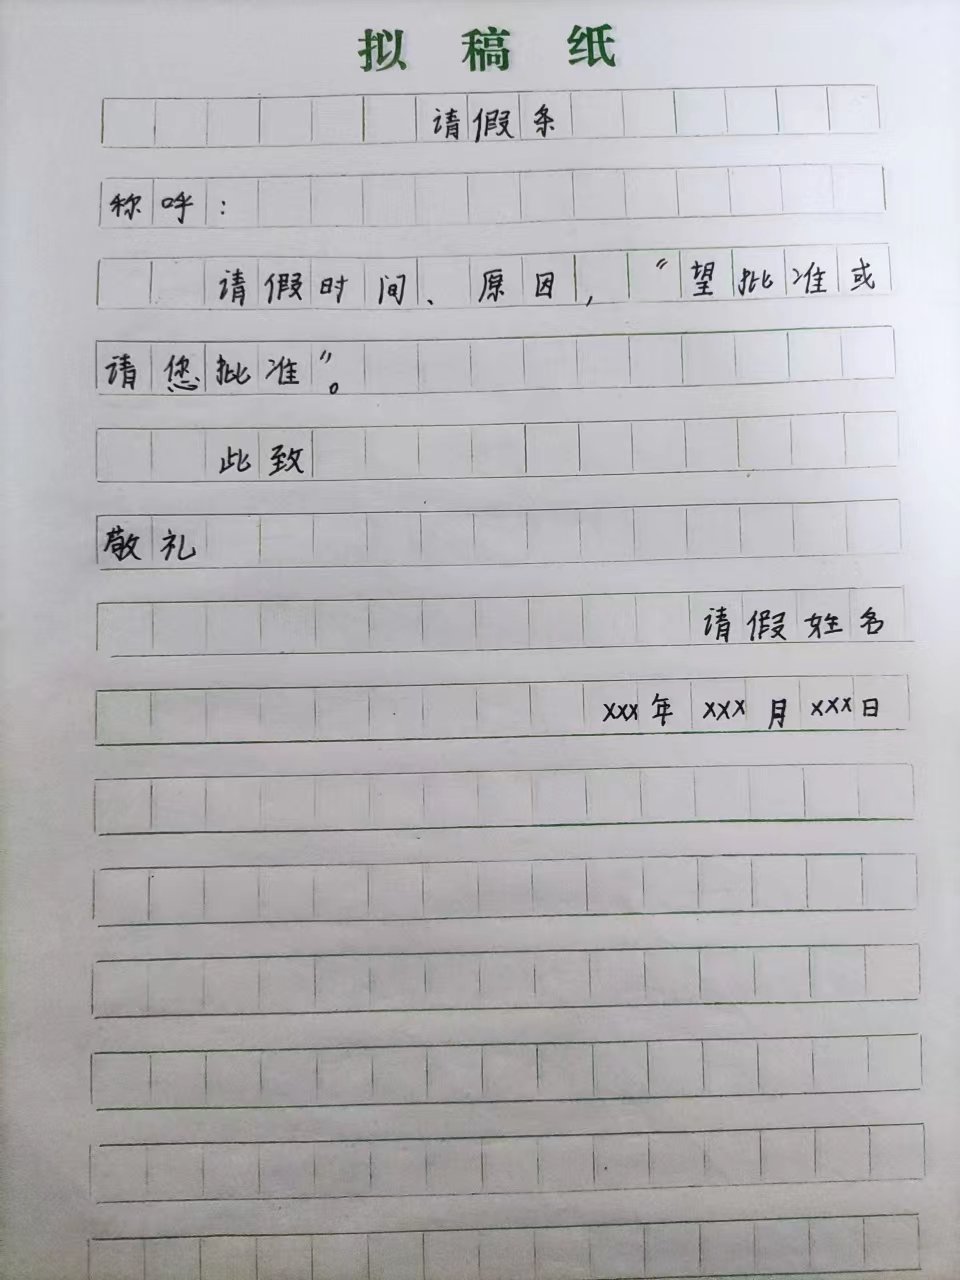 拟稿纸
请假条
称呼：
请假时间、原因，“望批准或
请您批准”。
此致
敬礼
请假姓名
xxx年xxx月xxx日